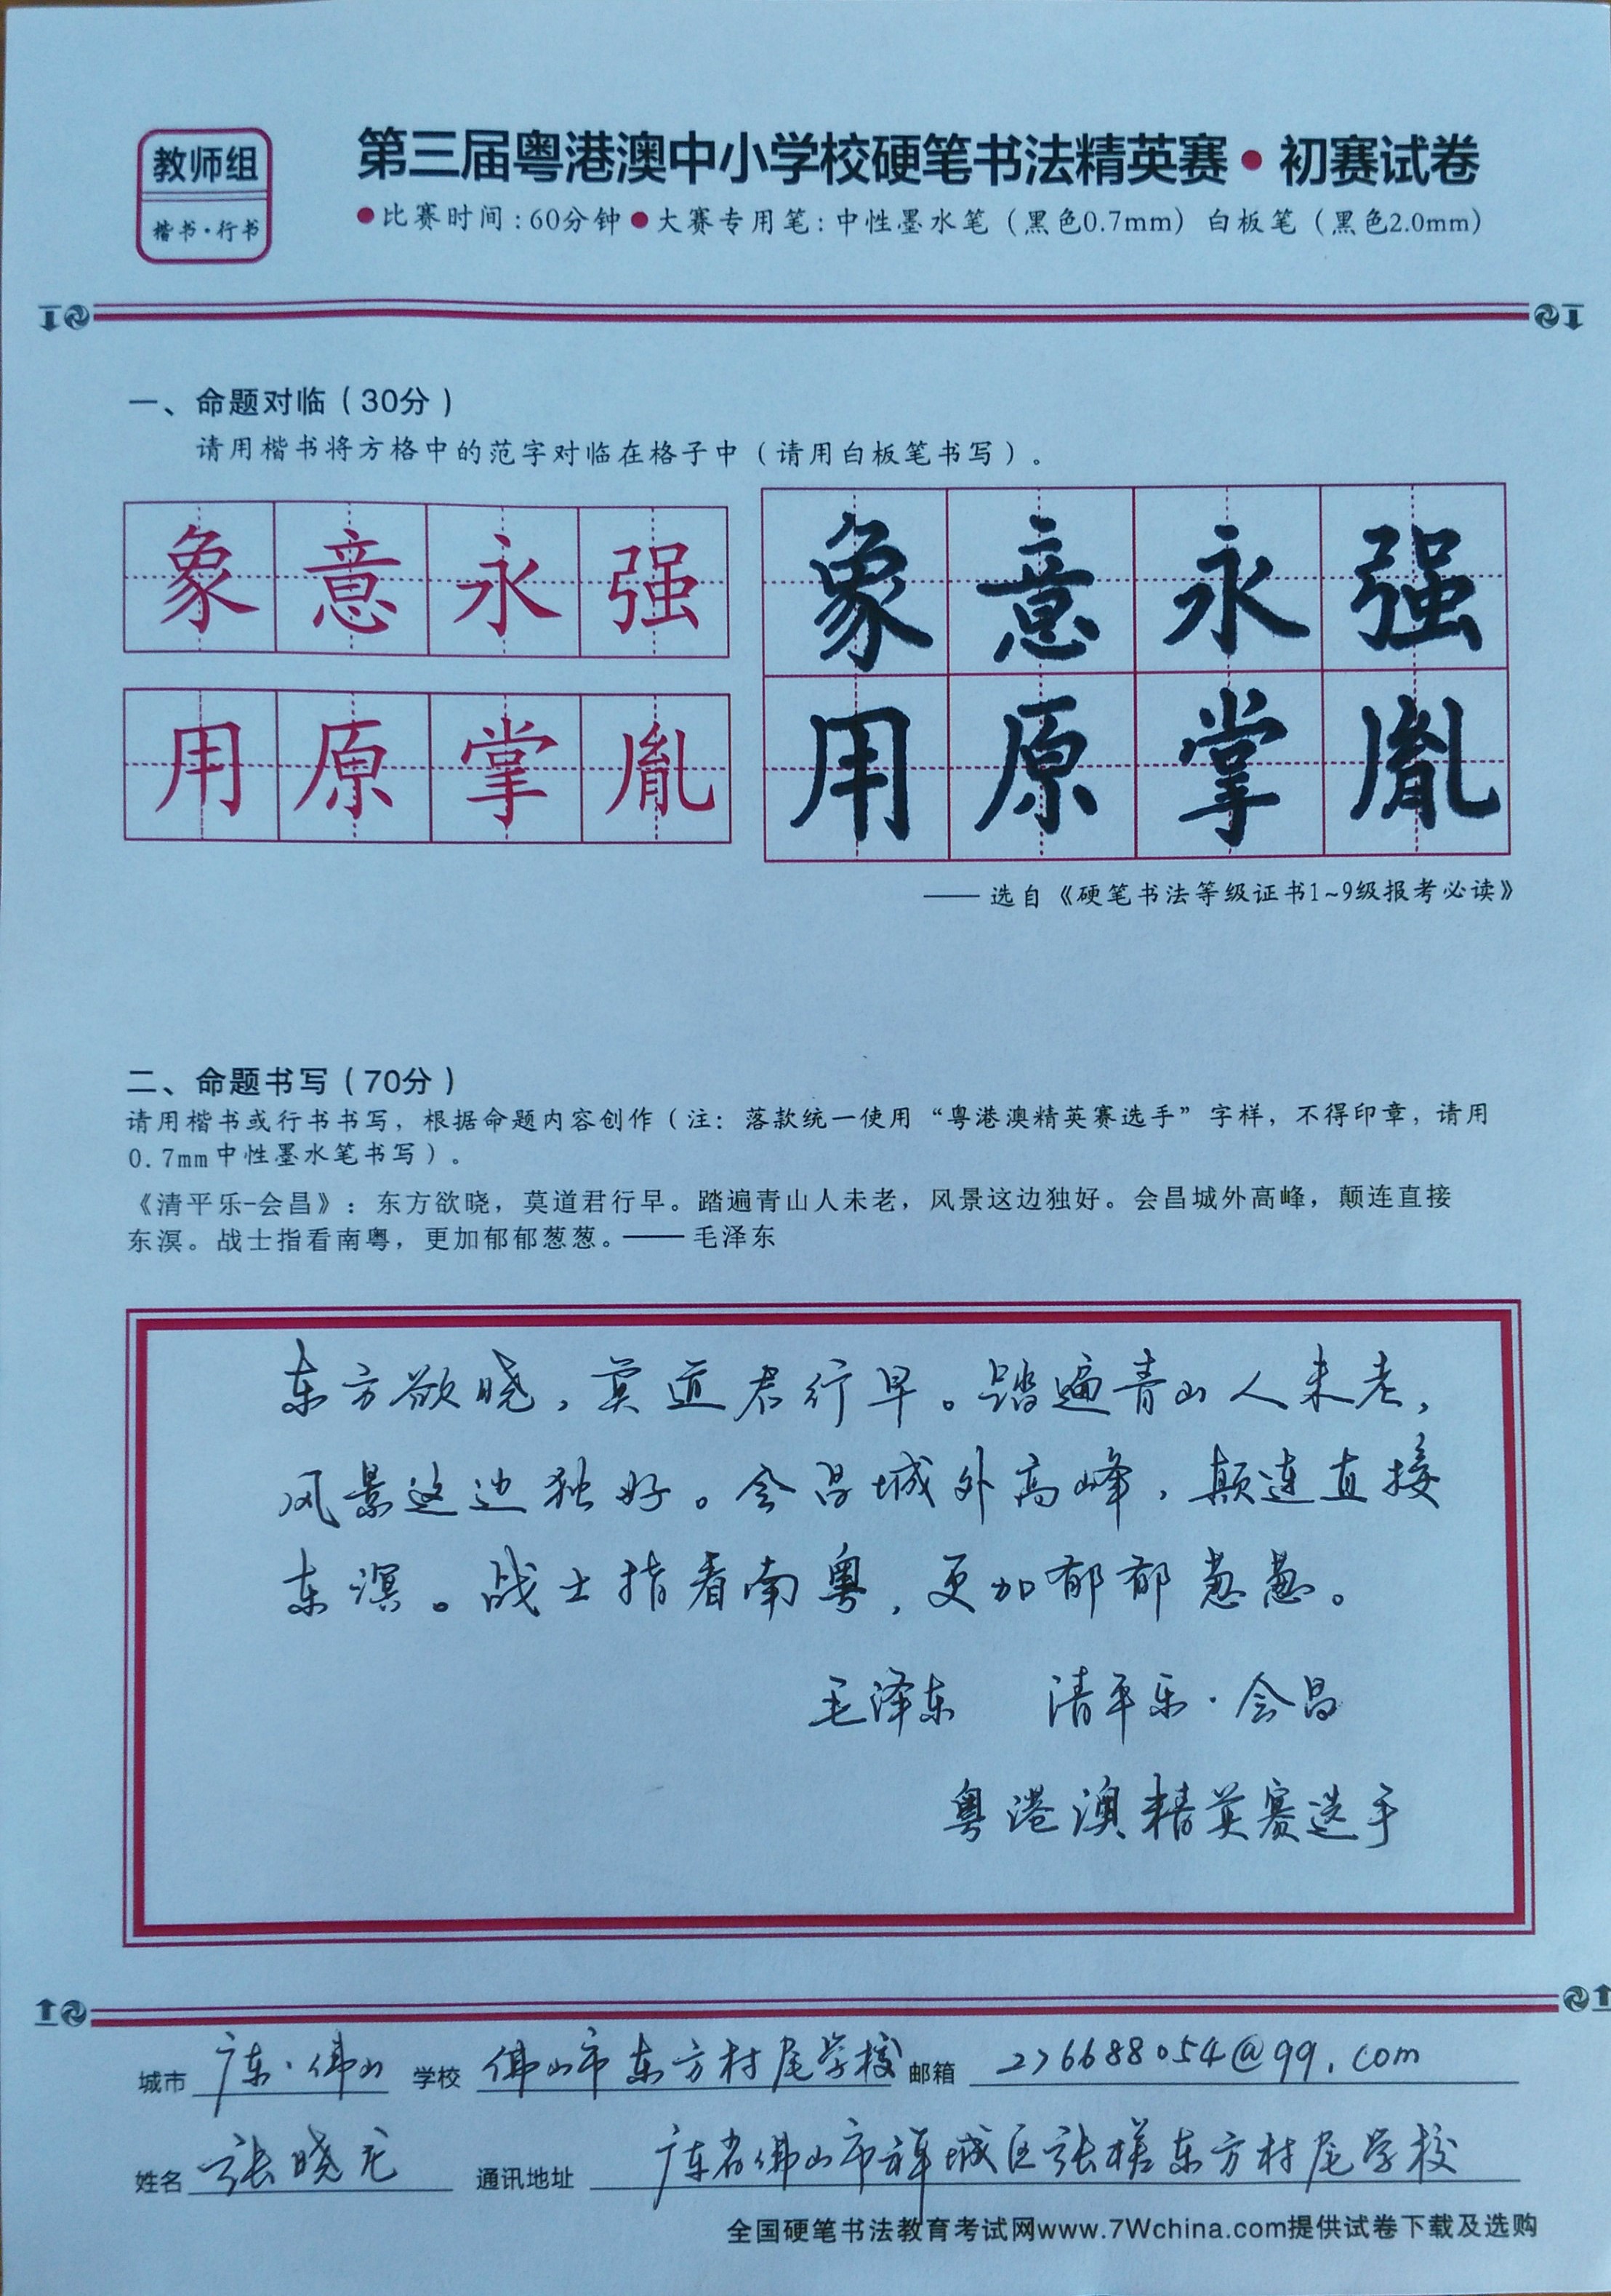 教师组
楷书·行书
第三届粤港澳中小学校硬笔书法精英赛·初赛试卷
●比赛时间:60分钟●大赛专用笔:中性墨水笔(黑色0.7mm)白板笔(黑色2.0mm)
一、命题对临(30分)
请用楷书将方格中的范字对临在格子中(请用白板笔书写)。
象意永强
用原掌胤
象意永强
用原掌胤
——选自《硬笔书法等级证书1~9级报考必读》
二、命题书写(70分)
请用楷书或行书书写,根据命题内容创作(注:落款统一使用“粤港澳精英赛选手”字样,不得印章,请用
0.7mm中性墨水笔书写)。
《清平乐-会昌》:东方欲晓,莫道君行早。踏遍青山人未老,风景这边独好。会昌城外高峰,颠连直接
东溟。战士指看南粤,更加郁郁葱葱。——毛泽东
东方欲晓,莫道君行早。踏遍青山人未老,
风景这边独好。会昌城外高峰,颠连直接
东溟。战士指看南粤,更加郁郁葱葱。
毛泽东 清平乐·会昌
粤港澳精英赛选手
城市 广东·佛山 学校 佛山市东方村尾学校 邮箱 276688054@qq.com
姓名 张晓龙 通讯地址 广东省佛山市禅城区张槎东方村尾学校
全国硬笔书法教育考试网www.7Wchina.com提供试卷下载及选购